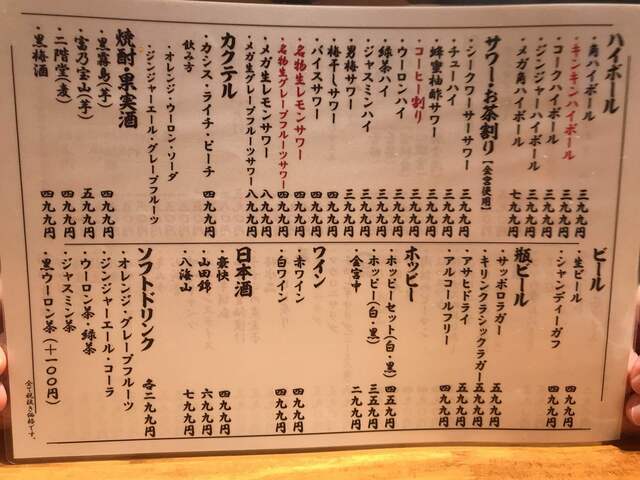 ハイボール
・角ハイボール 三九九円
・キンキンハイボール 三九九円
・コークハイボール 三九九円
・ジンジャーハイボール 三九九円
・メガ角ハイボール 七九九円
サワー・お茶割り【金宮使用】
・シークワーサーサワー 三九九円
・チューハイ 三九九円
・蜂蜜柚酢サワー 三九九円
・コーヒー割り 三九九円
・ウーロンハイ 三九九円
・緑茶ハイ 三九九円
・ジャスミンハイ 三九九円
・男梅サワー 三九九円
・梅干しサワー 四九九円
・バイスサワー 四九九円
・名物生レモンサワー 四九九円
・名物生グレープフルーツサワー 四九九円
・メガ生レモンサワー 八九九円
・メガ生グレープフルーツサワー 八九九円
カクテル
・カシス・ライチ・ピーチ 四九九円
飲み方
・オレンジ・ウーロン・ソーダ
・ジンジャーエール・グレープフルーツ
焼酎・果実酒
・黒霧島(芋) 四九九円
・富乃宝山(芋) 五九九円
・二階堂(麦) 四九九円
・黒梅酒 四九九円
ビール
・生ビール 四九九円
・シャンディーガフ 四九九円
瓶ビール
・サッポロラガー 五九九円
・キリンクラシックラガー 五九九円
・アサヒドライ 五九九円
・アルコールフリー 四九九円
ホッピー
・ホッピーセット(白・黒) 四五九円
・ホッピー(白・黒) 三五九円
・金宮中 二九九円
ワイン
・赤ワイン 四九九円
・白ワイン 四九九円
日本酒
・豪快 四九九円
・山田錦 六九九円
・八海山 七九九円
ソフトドリンク
・オレンジ・グレープフルーツ 各二九九円
・ジンジャーエール・コーラ
・ウーロン茶・緑茶
・ジャスミン茶
・黒ウーロン茶(+一〇〇円)
全て税抜き価格です。